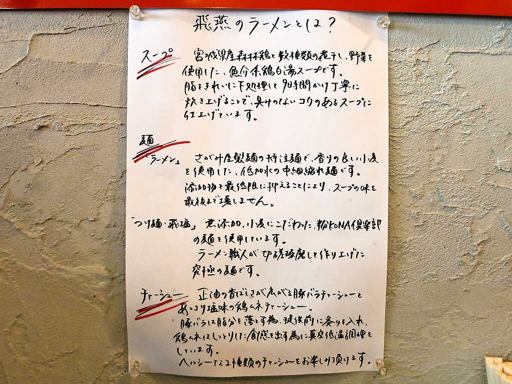 飛燕のラーメンとは？
スープ 宮城県産森林鶏と数種類の煮干し、野菜を
使用した、魚介系鶏白湯スープです。
脂をきれいに下処理して9時間かけ丁寧に
炊き上げることで、臭みのないコクのあるスープに
仕上げています。
麺
「ラーメン」 さがみ屋製麺の特注麺で、香りの良い小麦
を使用した、低加水の中細縮れ麺です。
添加物を最低限に抑えることにより、スープの味を
最後まで壊しません。
「つけ麺・飛塩」 無添加、小麦にこだわった、粉KONA倶楽部
の麺を使用しています。
ラーメン職人が切磋琢磨して作り上げた
究極の麺です。
チャーシュー 正油の香ばしさが広がる豚バラチャーシューと
あっさり塩味の鶏ムネチャーシュー。
豚バラは脂分を落とす為、提供前に炙りを入れ、
鶏ムネはしっとりした食感を出す為に真空低温調理を
しています。
ヘルシーな2種類のチャーシューをお楽しみ頂けます。